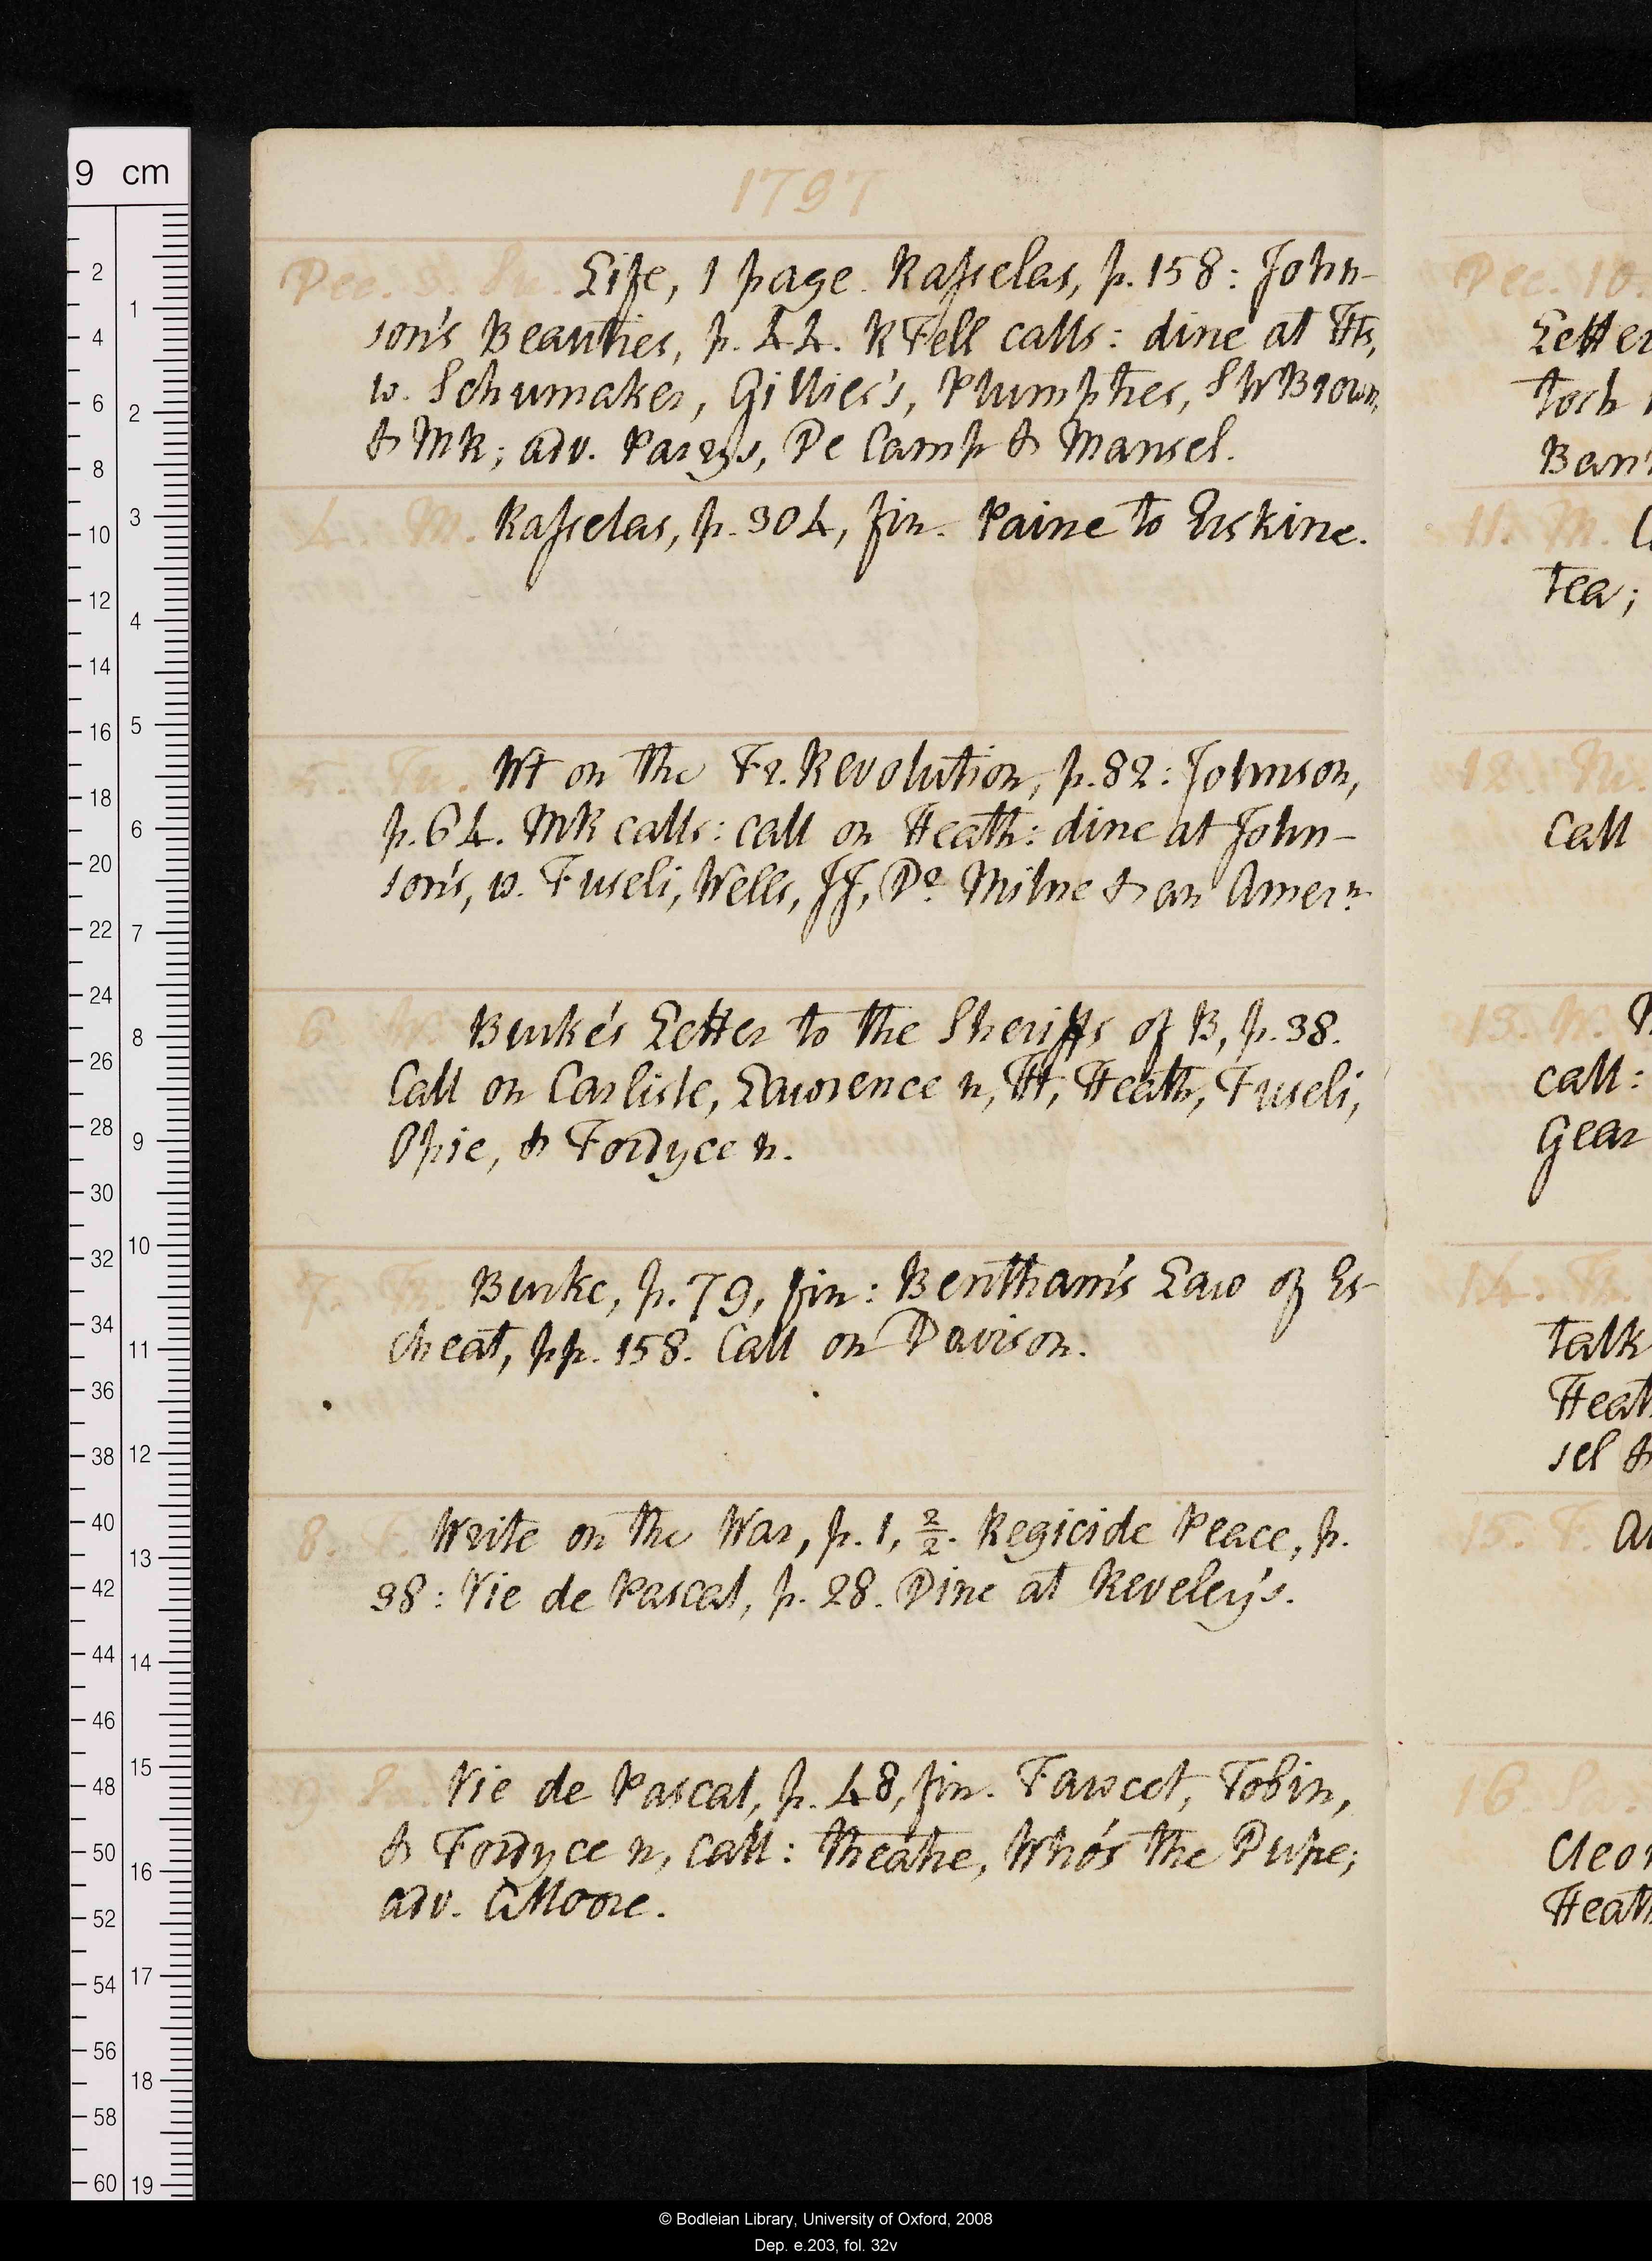 1797
Dec. 3. Su. Life, 1 page. Rasselas, p. 158: John-
son's Beauties, p. 44. R Fell calls: dine at Hts,
w. Schumaker, Gillies's, Plumptres, S W Brown,
& MR; adv. Parrys, De Camp & Mansel.
4. M. Rasselas, p. 304, fin. Paine to Erskine.
5. Tu. Wt on the Fr. Revolution, p. 82: Johnson,
p. 64. MR calls: call on Heath: dine at John-
son's, w. Fuseli, Wells, JJ, Dr. Milne & an Amern.
6. W. Burke's Letter to the Sheriffs of B, p. 38.
Call on Carlisle, Lawrence n, Ht, Heath, Fuseli,
Opie, & Fordyce n.
7. Th. Burke, p. 79, fin: Bentham's Law of Es-
cheat, pp. 158. Call on Davison.
8. F. Write on the War, p. 1, 2/2. Regicide Peace, p.
38: Vie de Pascal, p. 28. Dine at Reveley's.
9. Sa. Vie de Pascal, p. 48, fin. Fawcet, Tobin,
& Fordyce n, call: theatre, Who's the Dupe;
adv. CMoore.
Dec. 10.
Letter
Bar
11. M.
tea;
12. Tu.
call
13. W.
call:
Gear
14. Th.
talk
Heath
sel &
15. F.
16. Sa.
Cleo
Heath
9 cm
© Bodleian Library, University of Oxford, 2008
Dep. e.203, fol. 32v